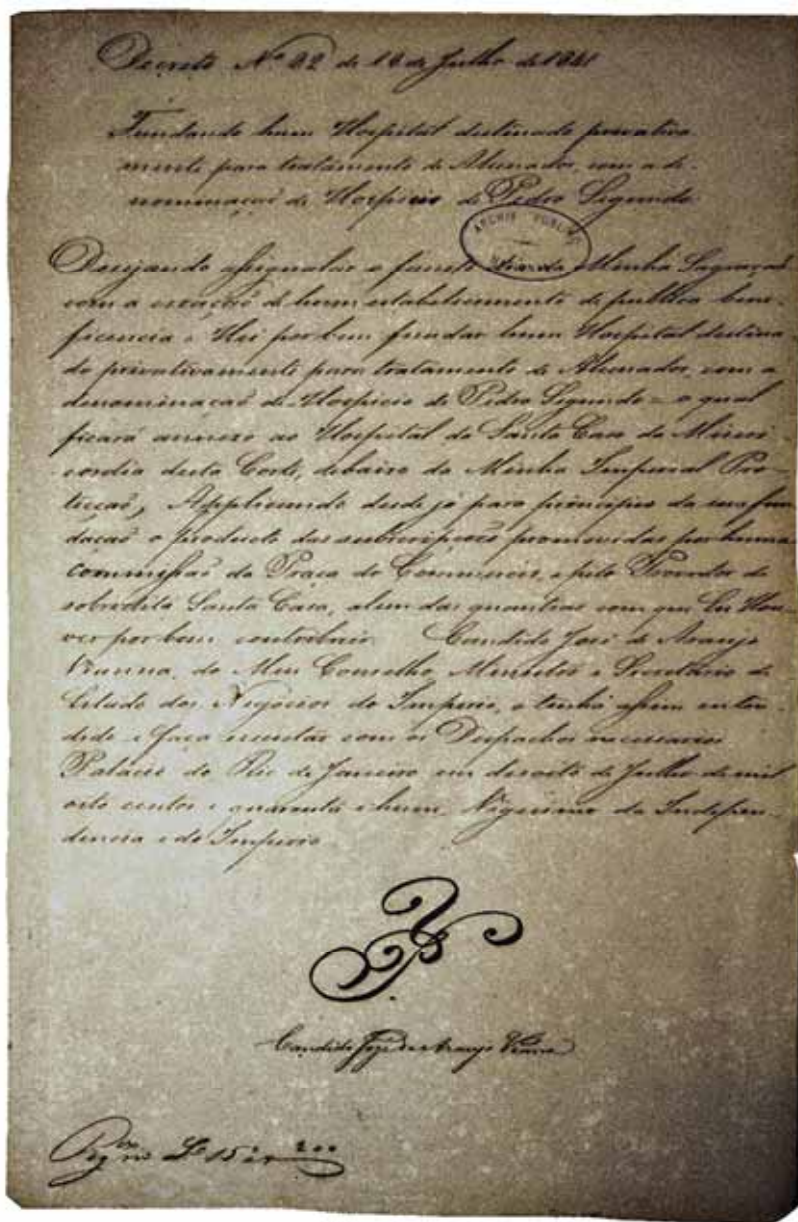 Decreto Nº 82 de 18 de Julho de 1841
Fundando hum Hospital destinado privativa
mente para tratamento de Alienados, com a de-
nominação de Hospicio de Pedro Segundo.
ARCHIVO PUBLICO
Desejando assignalar o fausto dia da Minha Sagração
com a creação de hum estabelecimento de publica bene-
ficencia: Hei por bem fundar hum Hospital destina-
do privativamente para tratamento de Alienados, com a
denominação de Hospicio de Pedro Segundo = o qual
ficará annexo ao Hospital da Santa Casa da Miseri
cordia desta Corte, debaixo da Minha Imperial Pro-
tecção, Applicando desde já para principio da sua fun
dação o producto das subscripções promovidas por huma
commissão da Praça do Commercio, e pelo Provedor da
sobredita Santa Casa, alem das quantias com que Eu Hou-
ver por bem contribuir. Candido José de Araujo
Vianna, do Meu Conselho, Ministro e Secretario de
Estado dos Negocios do Imperio, o tenha assim enten-
dido e faça executar com os Despachos necessarios.
Palacio do Rio de Janeiro em desoito de Julho de mil
oito centos e quarenta e hum, Vigesimo da Indepen-
dencia e do Imperio.
Candido José de Araujo Vianna